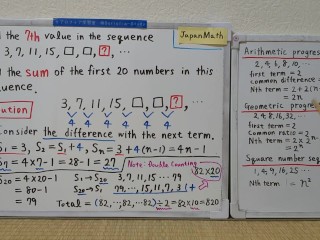 the 7th value in the sequence
3, 7, 11, 15, □, □, ?, …
the sum of the first 20 numbers in this
uence.
ution
JapanMath
3, 7, 11, 15, □, □, ?, …
4 4 4 4 4 4
Consider the difference with the next term.
S₁ = 3, S₂ = S₁ + 4, Sₙ = 3 + 4(n-1) = 4n-1
S₇ = 4×7-1 = 28-1 = 27
Note: Double Counting
82×20
S₂₀ = 4×20-1
= 80-1
= 79
S₁→S₂₀ 3, 7, 11, 15 … 79
S₂₀→S₁ 79, …, 15, 11, 7, 3 (+
Total = (82, …, 82)÷2 = 82×10 = 820
Arithmetic progres
2, 4, 6, 8, 10, …
first term = 2
Common difference =
Nth term = 2+2(n-
= 2n
Geometric progre
2, 4, 8, 16, 32, …
first term = 2
Common ratio = 2
Nth term = 2×2
= 2ⁿ
Square number seq
1, 4, 9, 16, 25, …
Nth term = n²